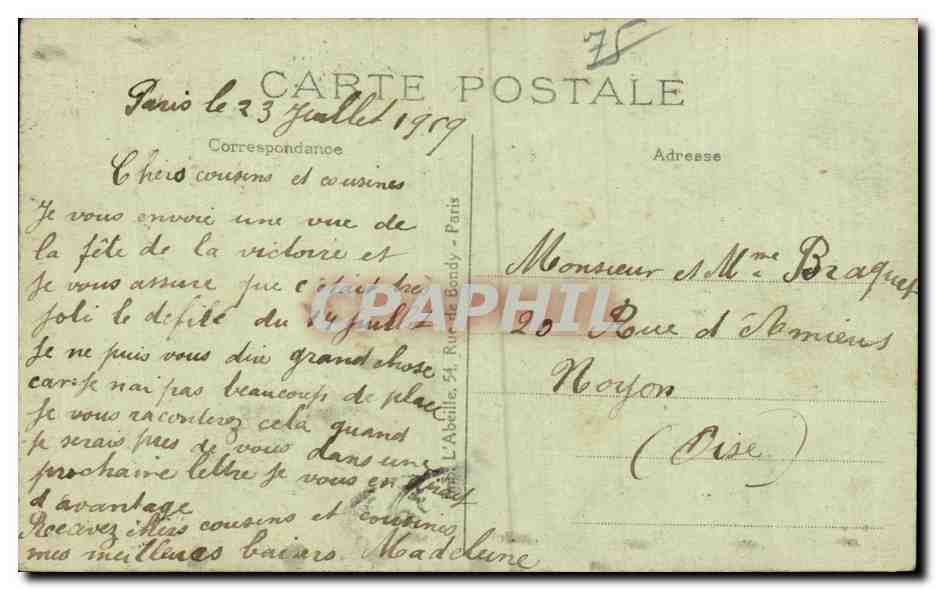 75
CARTE POSTALE
Paris le 23 Juillet 1919
Correspondance
Adresse
Chers cousins et cousines
Je vous envoie une vue de
la fête de la victoire et
Je vous assure que c'était tres
joli le defilé du 14 juillet
Je ne puis vous dire grand chose
car Je n'ai pas beaucoup de place
Je vous raconterez cela quand
je serais pres de vous dans une
prochaine lettre Je vous en dirait
d'avantage
Recevez chers cousins et cousines
mes meilleurs baisers Madeleine
L'Abeille, 54, Rue de Bondy - Paris
Monsieur et Mme Braquet
20 Rue d'Amiens
Noyon
(Oise)
CPAPHIL